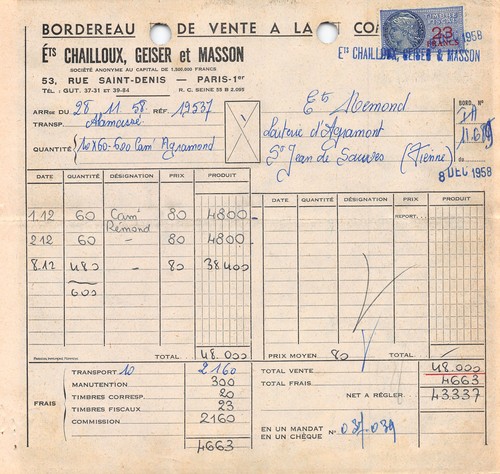 BORDEREAU DE VENTE A LA COM
Éts CHAILLOUX, GEISER et MASSON
SOCIÉTÉ ANONYME AU CAPITAL DE 1.500.000 FRANCS
53, RUE SAINT-DENIS — PARIS-1er
TÉL. : GUT. 37-31 ET 39-84 R. C. SEINE 55 B 2.095
TIMBRE FISCAL
23
FRANCS
1958
Ets CHAILLOUX, GEISER & MASSON
ARR. DU 28 11 58 RÉF. 19537
TRANSP.
QUANTITÉ 10x60=600 Cam' Agramond
Ets Remond
d'Agramont
St Jean de Sauves (Vienne)
BORD. N°
du
8 DEC 1958
DATE QUANTITÉ DÉSIGNATION PRIX PRODUIT
1.12 60 Cam' Rémond 80 4800
2.12 60 — 80 4800
8.12 480 — 80 38400
600
TOTAL 48.000
DATE QUANTITÉ DÉSIGNATION PRIX PRODUIT
REPORT
PRIX MOYEN 80 TOTAL
FRAIS
TRANSPORT 10 2160
MANUTENTION 300
TIMBRES CORRESP. 20
TIMBRES FISCAUX 23
COMMISSION 2160
4663
TOTAL VENTE 48.000
TOTAL FRAIS 4663
NET A RÉGLER 43337
EN UN MANDAT
EN UN CHÈQUE N°